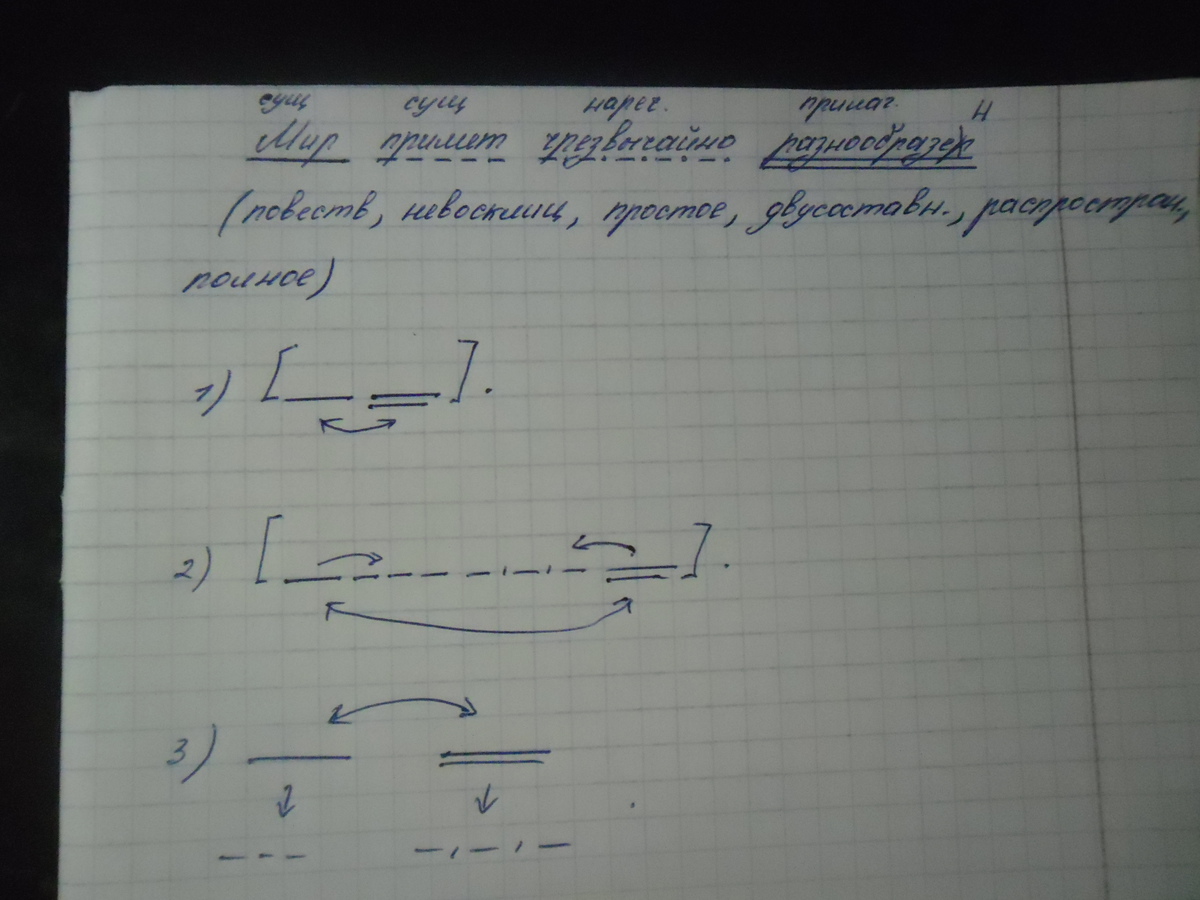 сущ сущ нареч. прилаг. Н
Мир примет чрезвычайно разнообразен
(повеств, невосклиц, простое, двусоставн., распростран,
полное)
1) [ ].
2) [ ].
3)